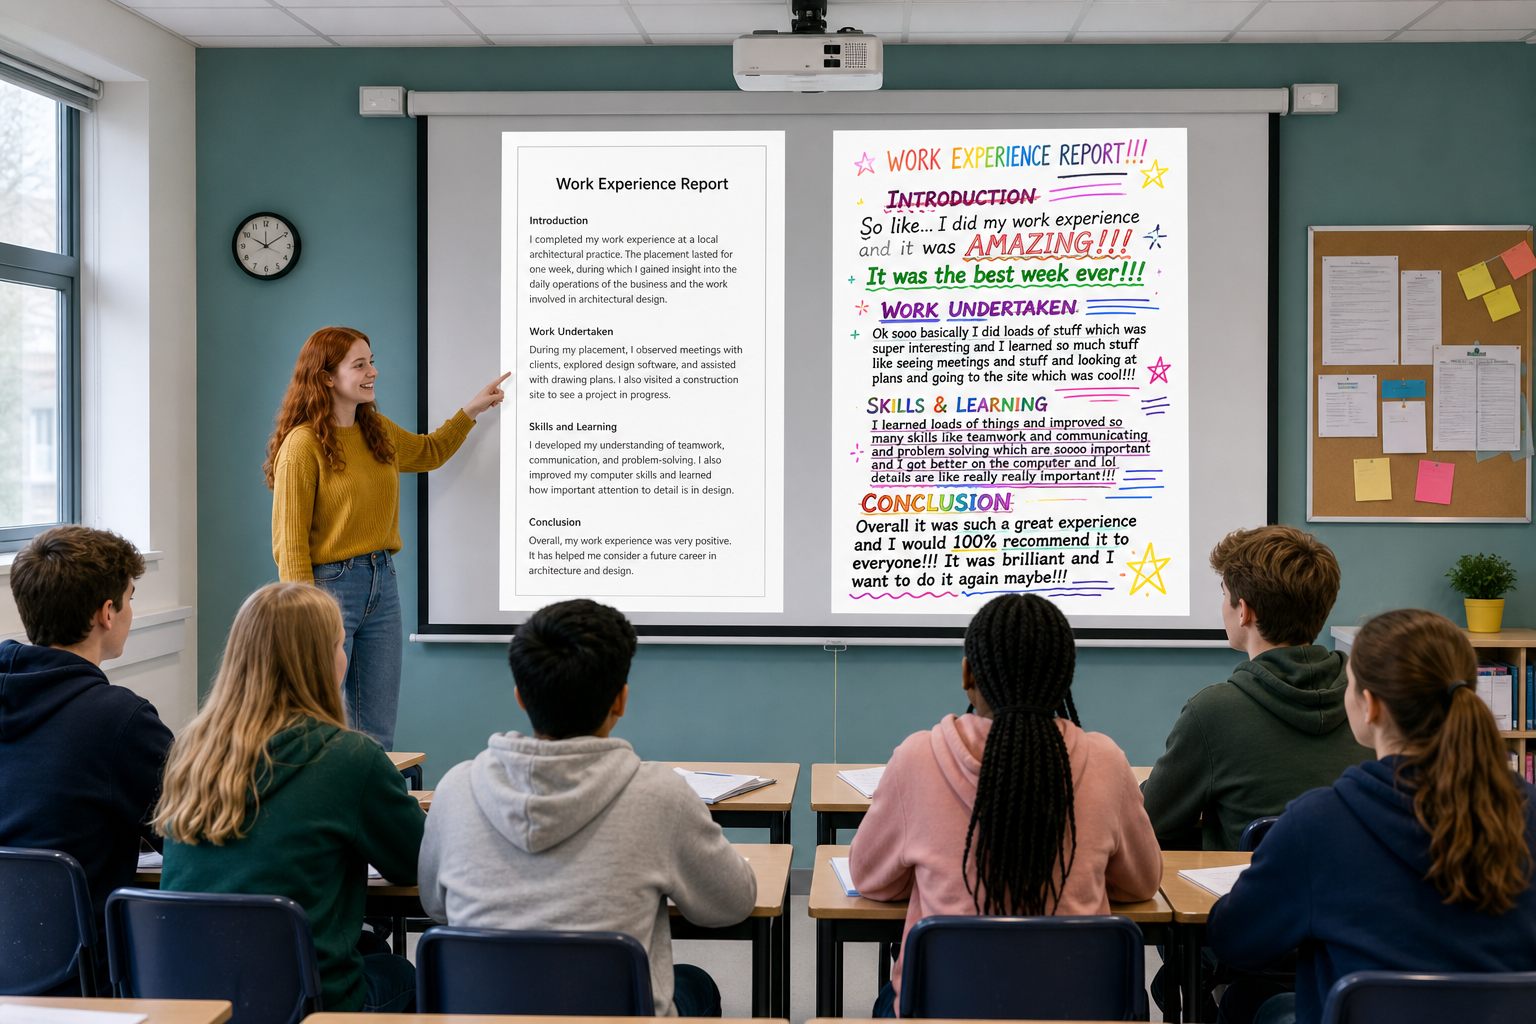 Work Experience Report
Introduction
I completed my work experience at a local
architectural practice. The placement lasted for
one week, during which I gained insight into the
daily operations of the business and the work
involved in architectural design.
Work Undertaken
During my placement, I observed meetings with
clients, explored design software, and assisted
with drawing plans. I also visited a construction
site to see a project in progress.
Skills and Learning
I developed my understanding of teamwork,
communication, and problem-solving. I also
improved my computer skills and learned
how important attention to detail is in design.
Conclusion
Overall, my work experience was very positive.
It has helped me consider a future career in
architecture and design.
WORK EXPERIENCE REPORT!!!
INTRODUCTION
So like... I did my work experience
and it was AMAZING!!!
It was the best week ever!!!
WORK UNDERTAKEN
Ok sooo basically I did loads of stuff which was
super interesting and I learned so much stuff
like seeing meetings and stuff and looking at
plans and going to the site which was cool!!!
SKILLS & LEARNING
I learned loads of things and improved so
many skills like teamwork and communicating
and problem solving which are soooo important
and I got better on the computer and lol
details are like really really important!!!
CONCLUSION
Overall it was such a great experience
and I would 100% recommend it to
everyone!!! It was brilliant and I
want to do it again maybe!!!